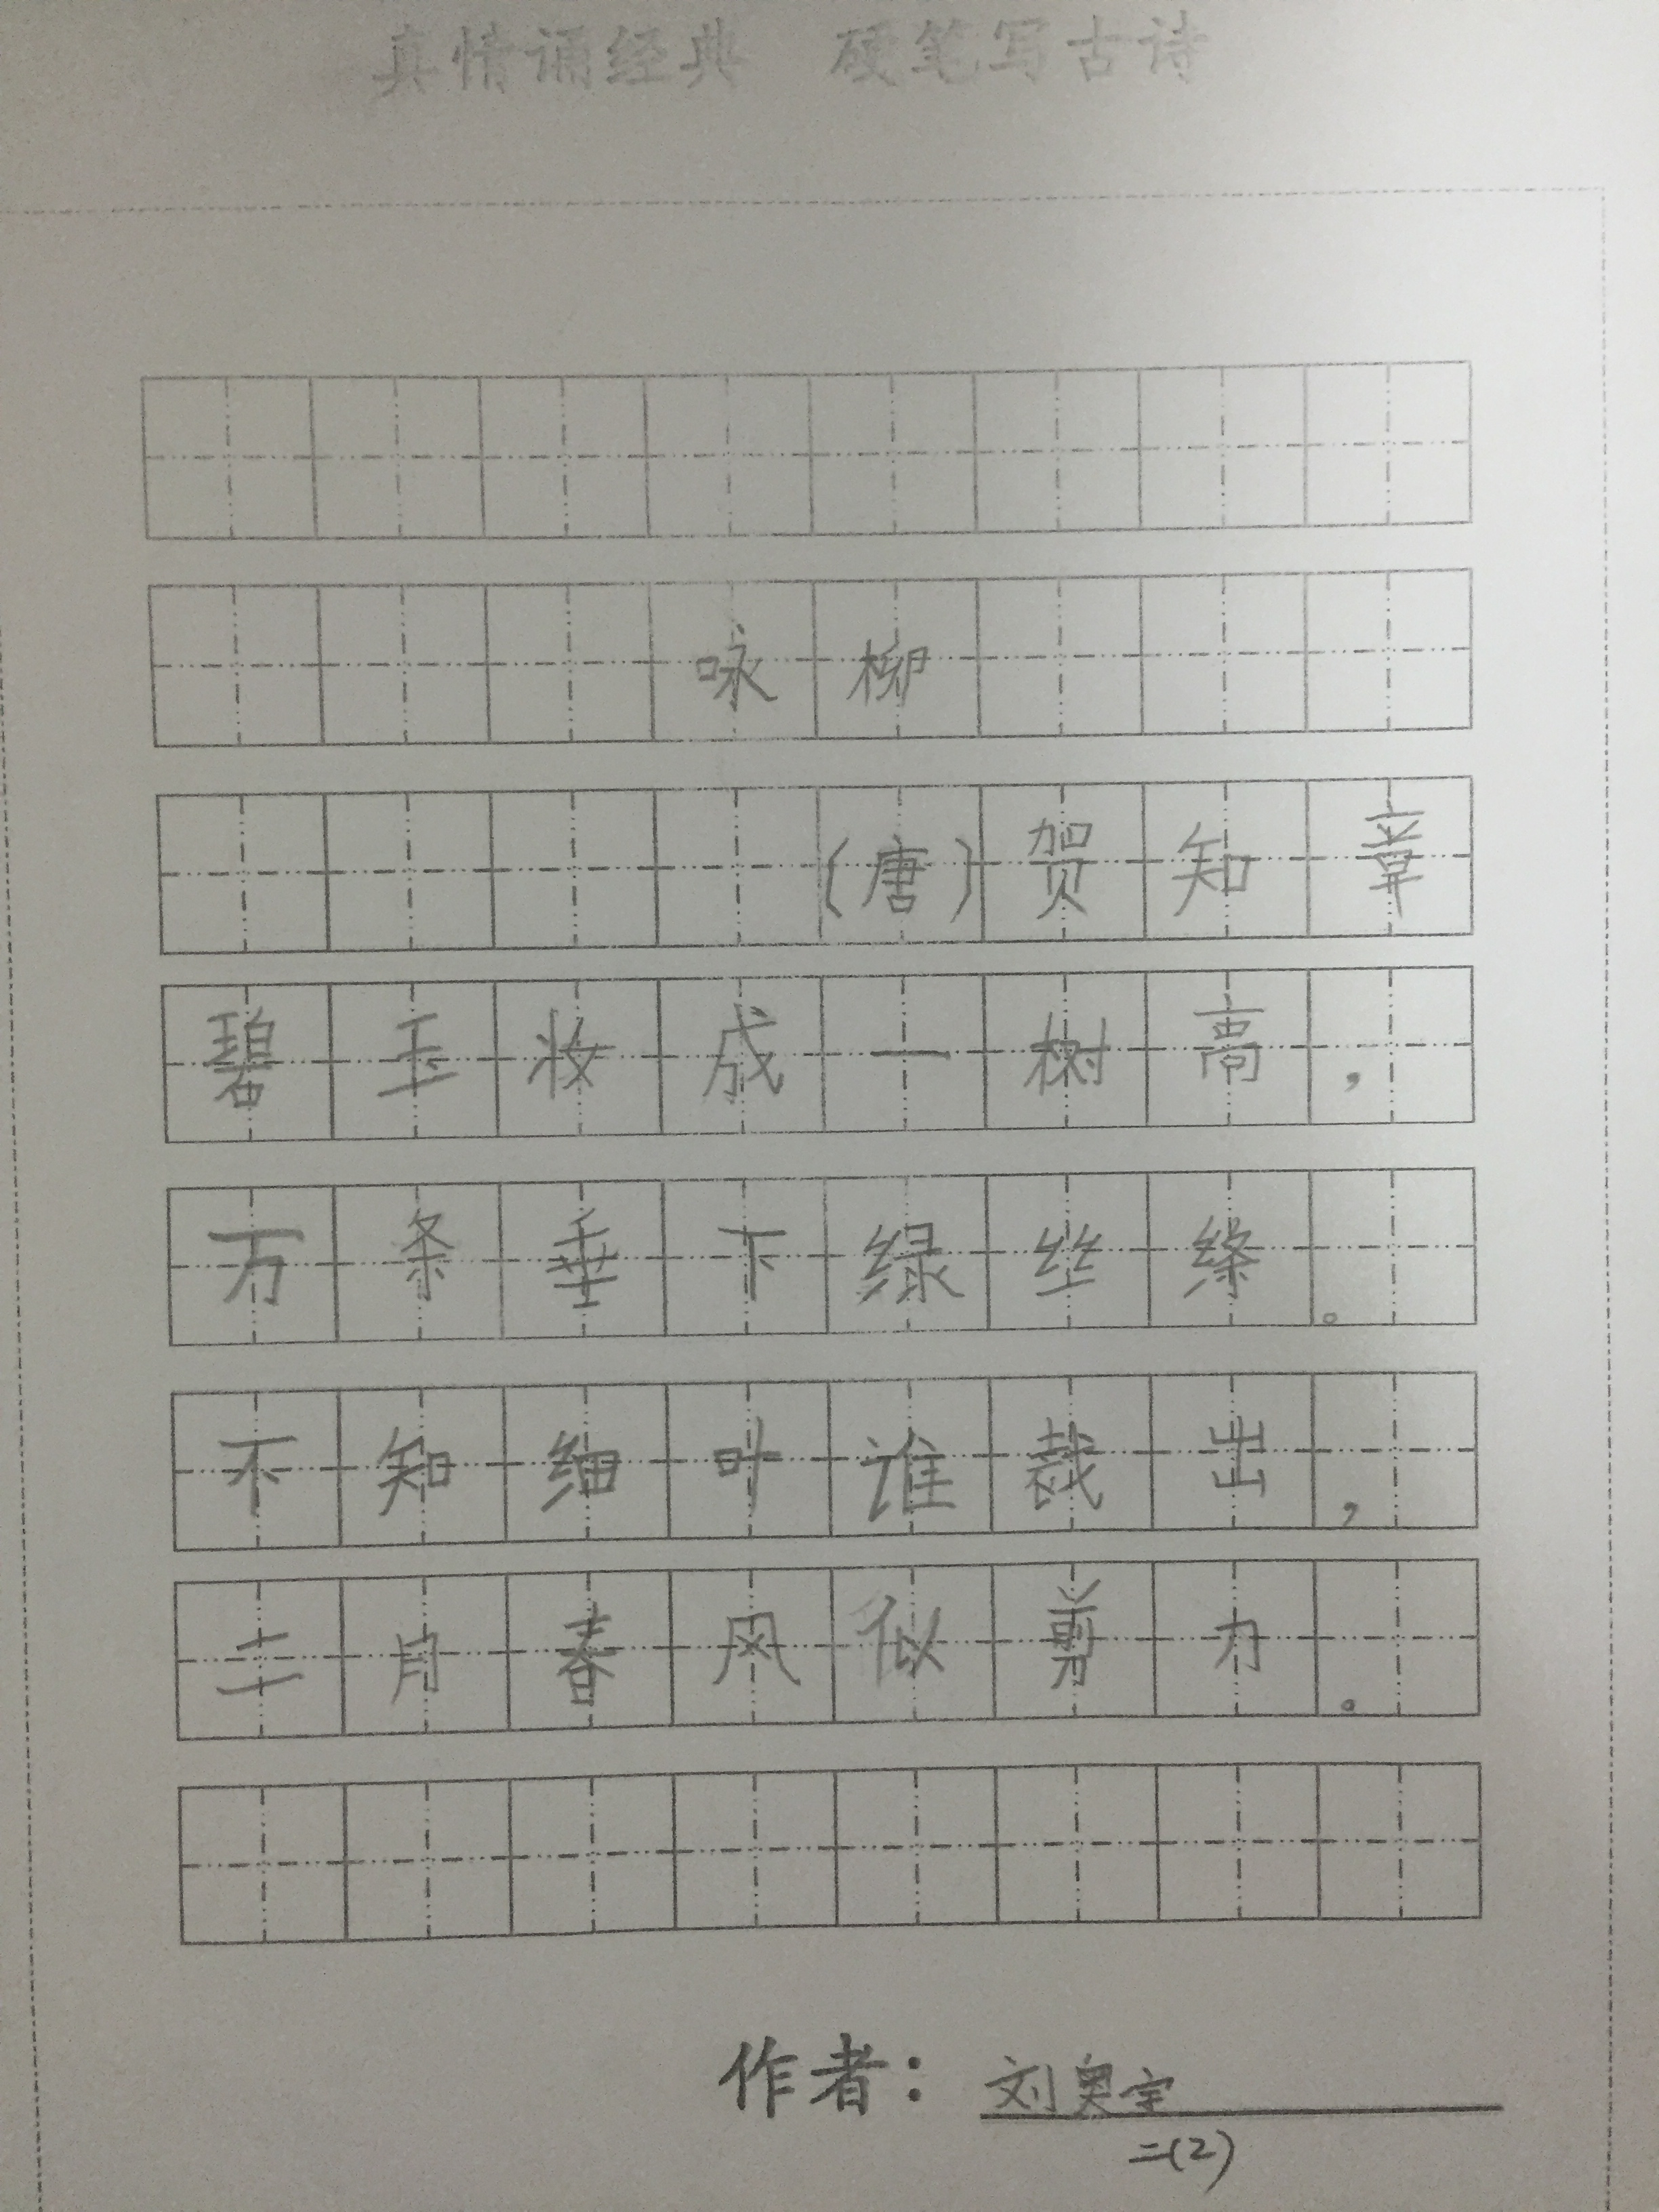 真情诵经典 硬笔写古诗
咏柳
(唐)贺知章
碧玉妆成一树高，
万条垂下绿丝绦。
不知细叶谁裁出，
二月春风似剪刀。
作者：刘奥宇
二(2)